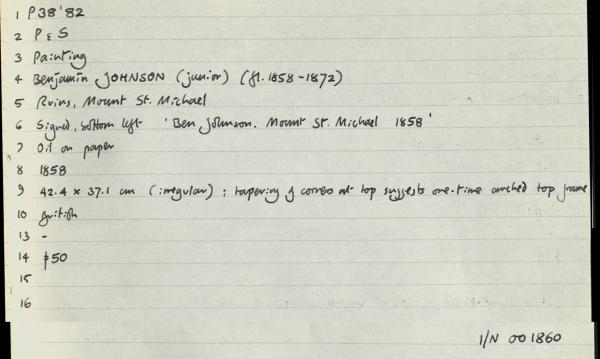 1 P38'82
2 P & S
3 Painting
4 Benjamin JOHNSON (junior) (fl. 1858-1872)
5 Ruins, Mount St. Michael
6 Signed, bottom left 'Ben Johnson. Mount St. Michael 1858'
7 Oil on paper
8 1858
9 42.4 x 37.1 cm (irregular); tapering of corners at top suggests one-time arched top frame
10 British
13 -
14 £50
15
16
I/N 001860